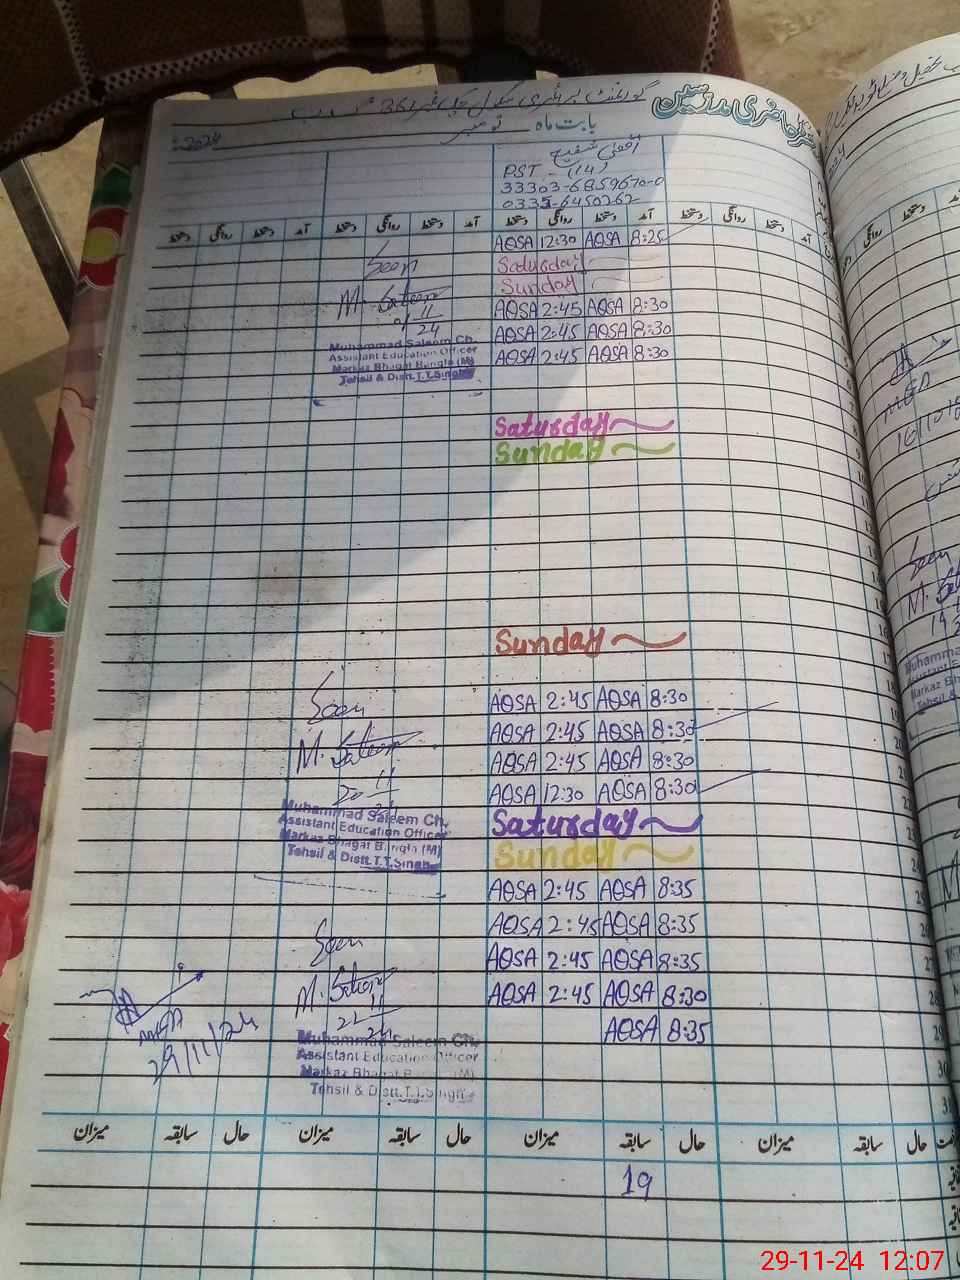 گورنمنٹ پرائمری سکول چک نمبر 361 گ ب
بابت ماہ نومبر
2024
اقصیٰ شفیع
PST - (14)
33303-6859670-0
0335-6450262
دستخط روانگی دستخط آمد دستخط روانگی دستخط آمد دستخط روانگی دستخط آمد دستخط روانگی دستخط آمد
AQSA 12:30 AQSA 8:25
Saturday
Sunday
AQSA 2:45 AQSA 8:30
AQSA 2:45 AQSA 8:30
AQSA 2:45 AQSA 8:30
Seen
M. Saleem
11
24
Muhammad Saleem Ch.
Assistant Education Officer
Markaz Bhagat Bungla (M)
Tehsil & Distt. T.T.Singh
Saturday
Sunday
Sunday
AQSA 2:45 AQSA 8:30
AQSA 2:45 AQSA 8:30
AQSA 2:45 AQSA 8:30
AQSA 12:30 AQSA 8:30
Seen
M. Saleem
20 11
24
Muhammad Saleem Ch.
Assistant Education Officer
Markaz Bhagat Bungla (M)
Tehsil & Distt. T.T.Singh
Saturday
Sunday
AQSA 2:45 AQSA 8:35
AQSA 2:45 AQSA 8:35
AQSA 2:45 AQSA 8:35
AQSA 2:45 AQSA 8:30
AQSA 8:35
Seen
M. Saleem
11
24
Muhammad Saleem Ch.
Assistant Education Officer
Markaz Bhagat Bungla (M)
Tehsil & Distt. T.T.Singh
29/11/24
میزان سابقہ حال میزان سابقہ حال میزان سابقہ حال میزان سابقہ حال
19
Seen
29-11-24 12:07